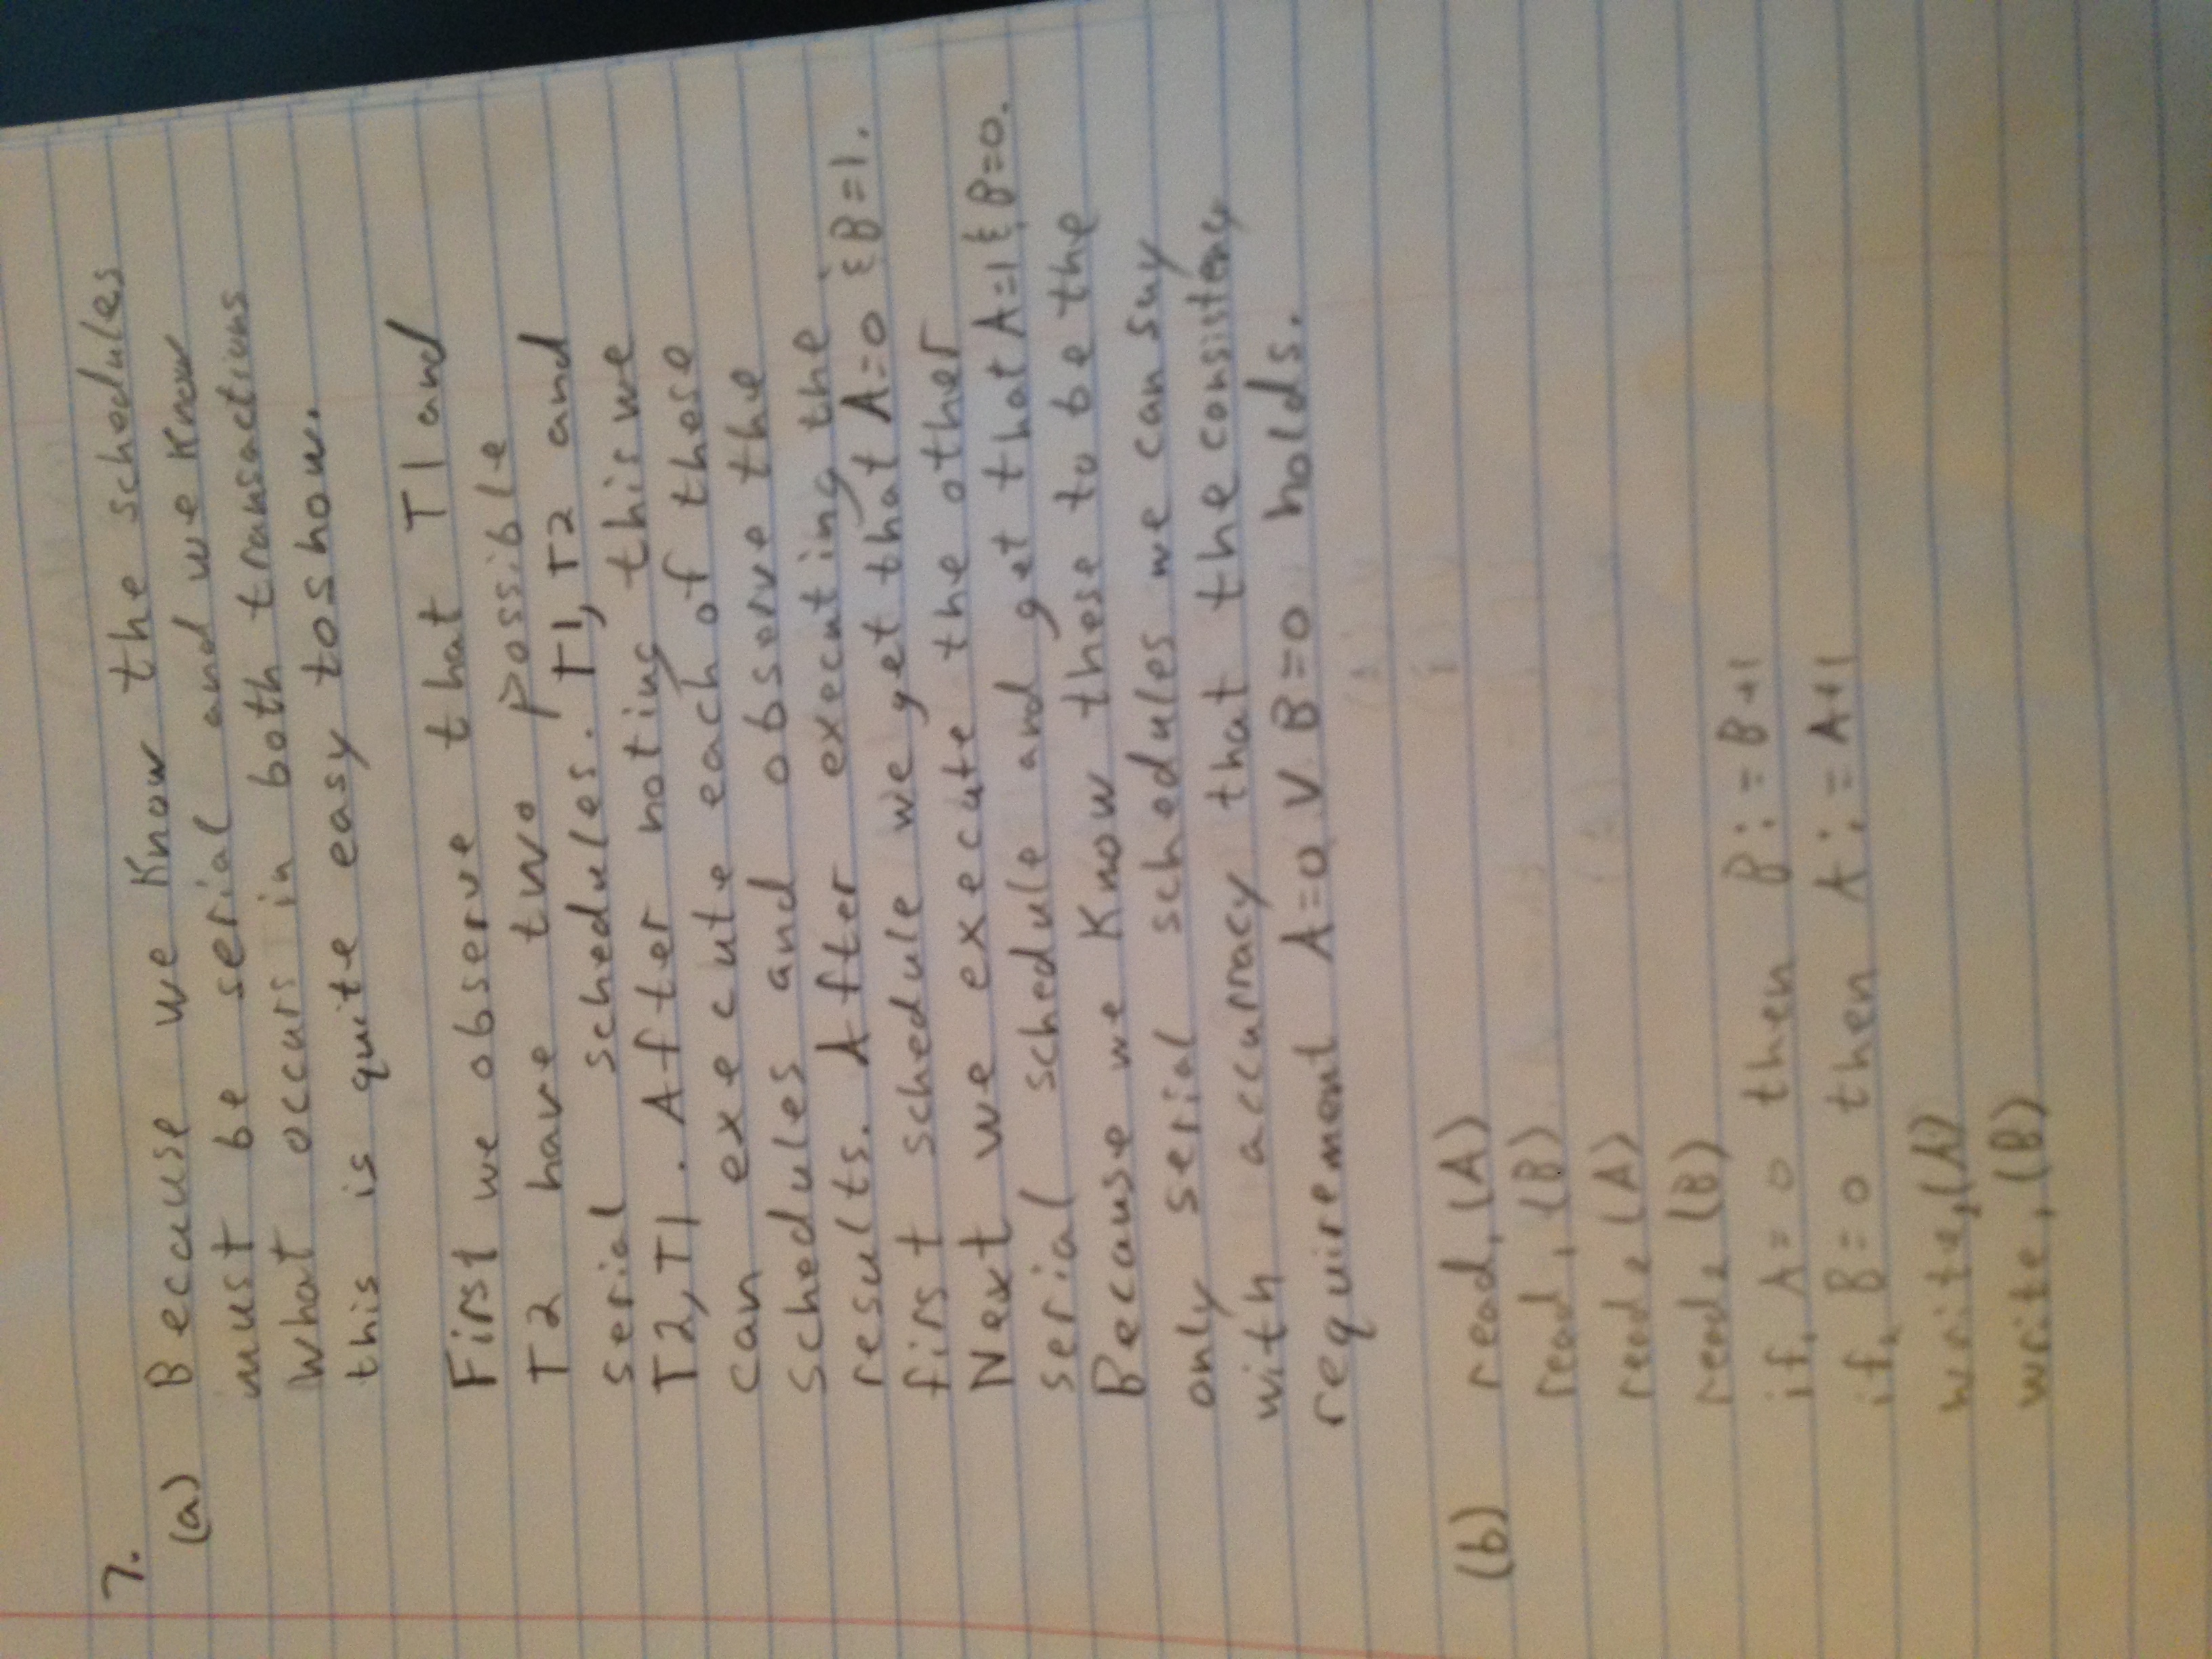 7.
(a) Because we know the schedules
must be serial and we know
what occurs in both transactions
this is quite easy to show.
First we observe that T1 and
T2 have two possible
serial schedules. T1, T2 and
T2, T1. After noting this we
can execute each of these
schedules and observe the
results. After executing the
first schedule we get that A=0 & B=1.
Next we execute the other
serial schedule and get that A=1 & B=0.
Because we know these to be the
only serial schedules we can say
with accurracy that the consistency
requirement A=0 V B=0 holds.
(b) read₁ (A)
read₁ (B)
read₂ (A)
read₂ (B)
if₁ A=0 then B:=B+1
if₂ B=0 then A:=A+1
write₂(A)
write₁(B)